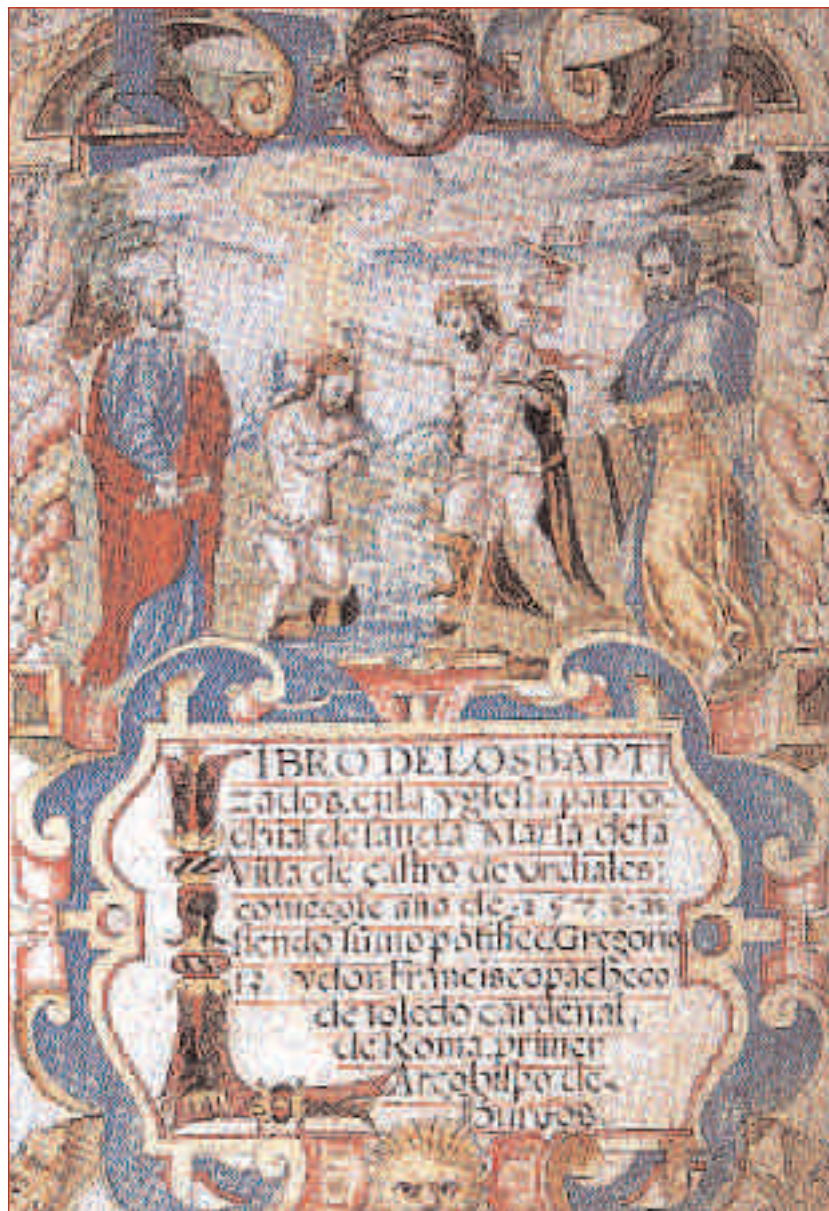 LIBRO DE LOS BAPTI
zados, en la yglesia parro
chial de sancta Maria de la
Villa de castro de vrdiales:
comēçose año de .157
siendo sūmo pōtifice. Gregorio
13. y don Francisco pacheco
de toledo cardenal,
de Roma. primer
Arçobispo de
Burgos.